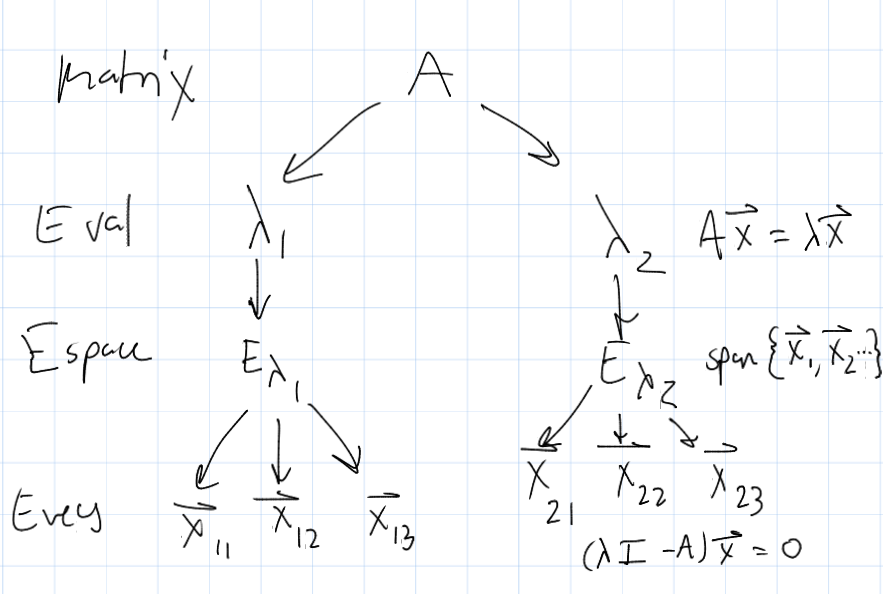 Matrix A
Eval λ₁ λ₂ Ax⃗ = λx⃗
Espace E_λ₁ E_λ₂ span {x⃗₁, x⃗₂...}
Evecs x⃗₁₁ x⃗₁₂ x⃗₁₃ x⃗₂₁ x⃗₂₂ x⃗₂₃
(λI - A)x⃗ = 0